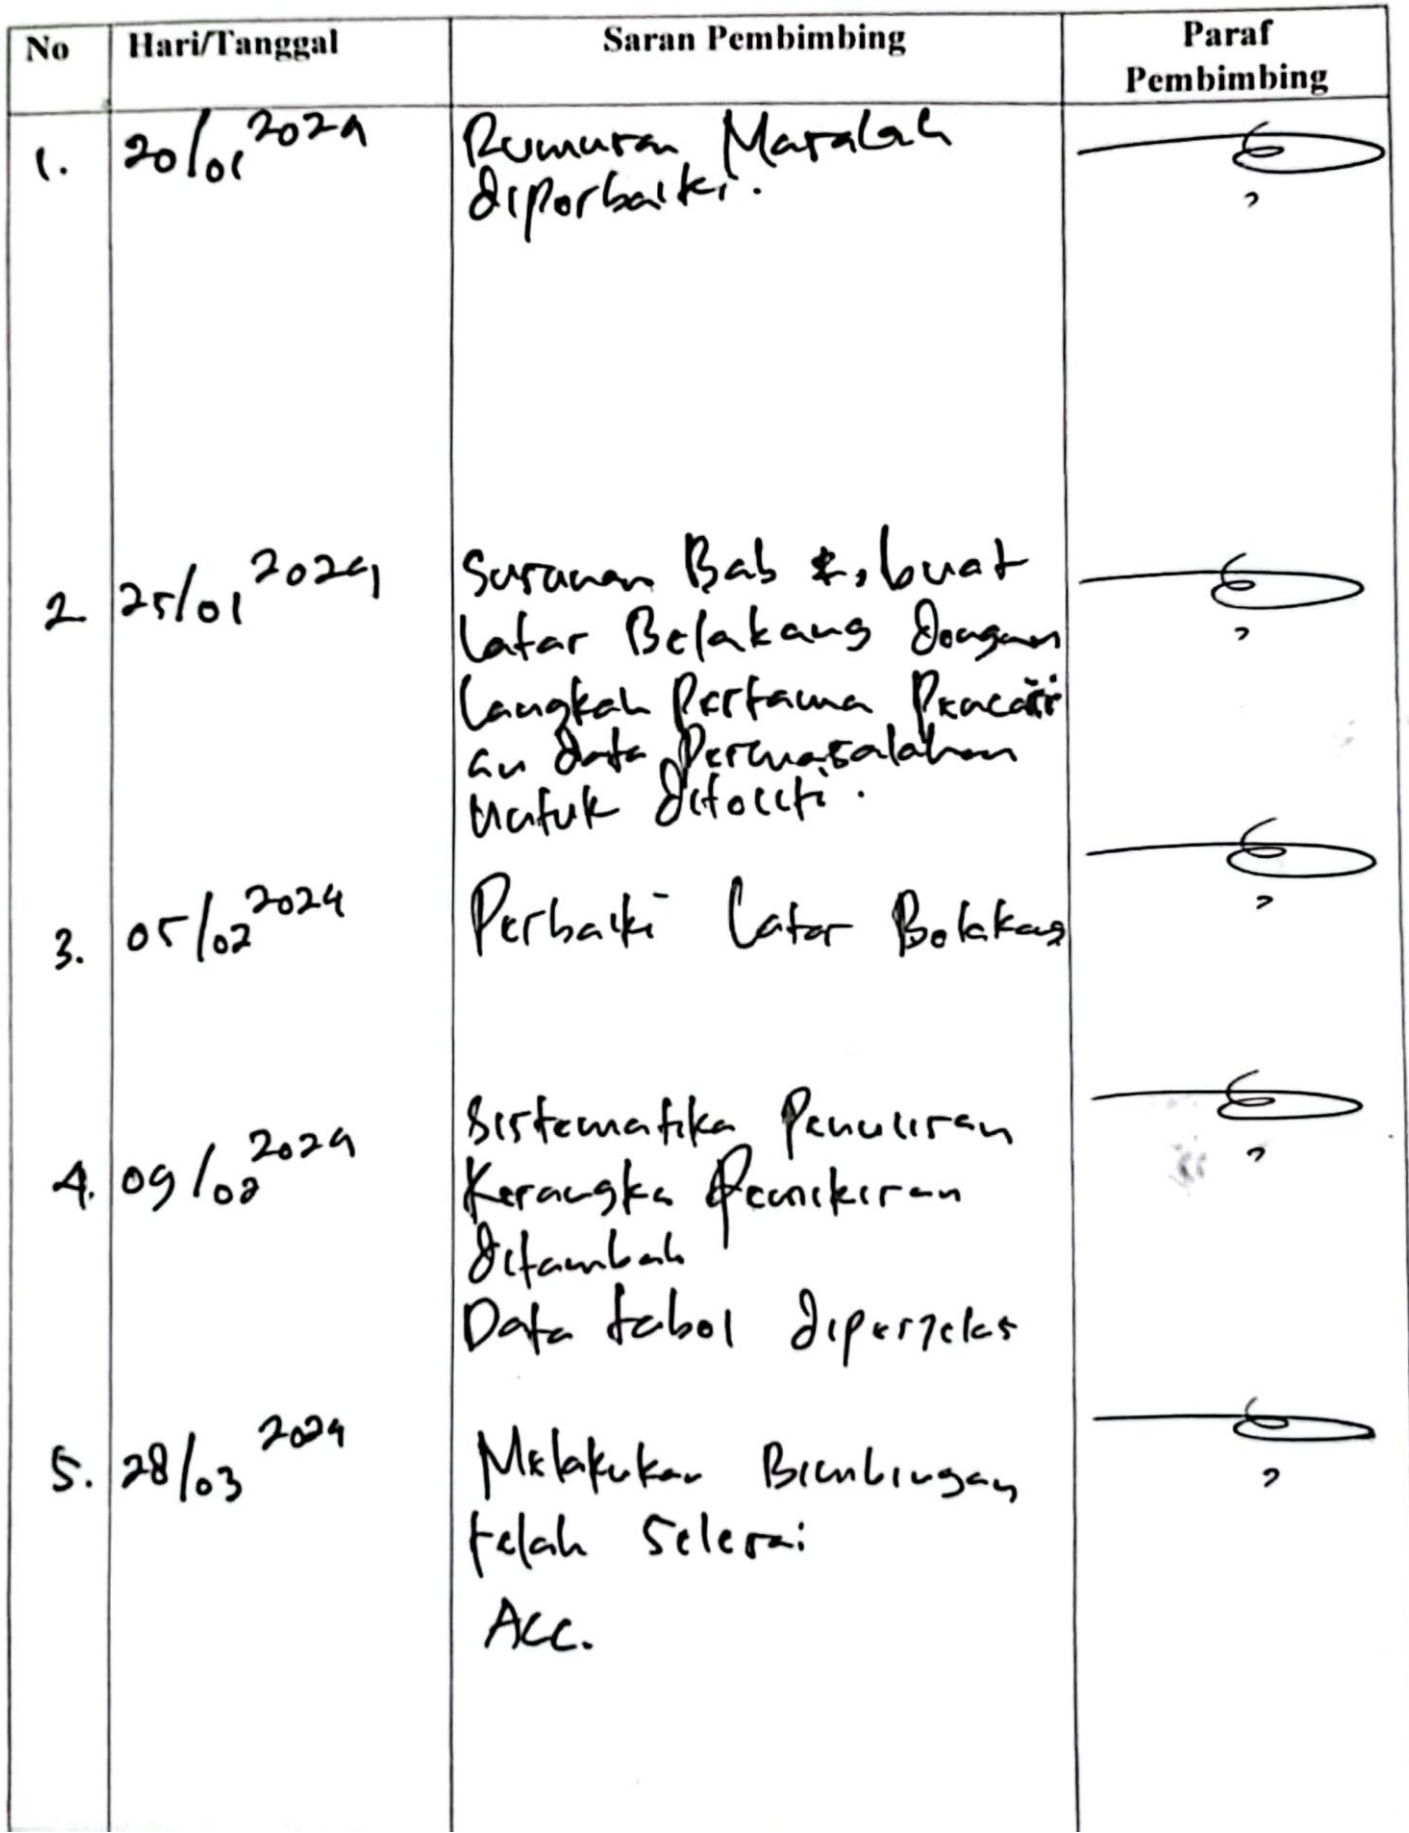 No Hari/Tanggal Saran Pembimbing Paraf
Pembimbing
1. 20/01 2024 Rumusan Masalah
diperbaiki.
2 25/01 2024 Susunan Bab buat
Latar Belakang dengan
Langkah Pertama Pencari
an data Permasalahan
untuk diteliti.
3. 05/02 2024 Perbaiki Latar Belakang
Sistematika Penulisan
4. 09/02 2024 Kerangka Pemikiran
ditambah
Data tabel diperjelas
5. 28/03 2024 Melakukan Bimbingan
telah Selesai
Acc.